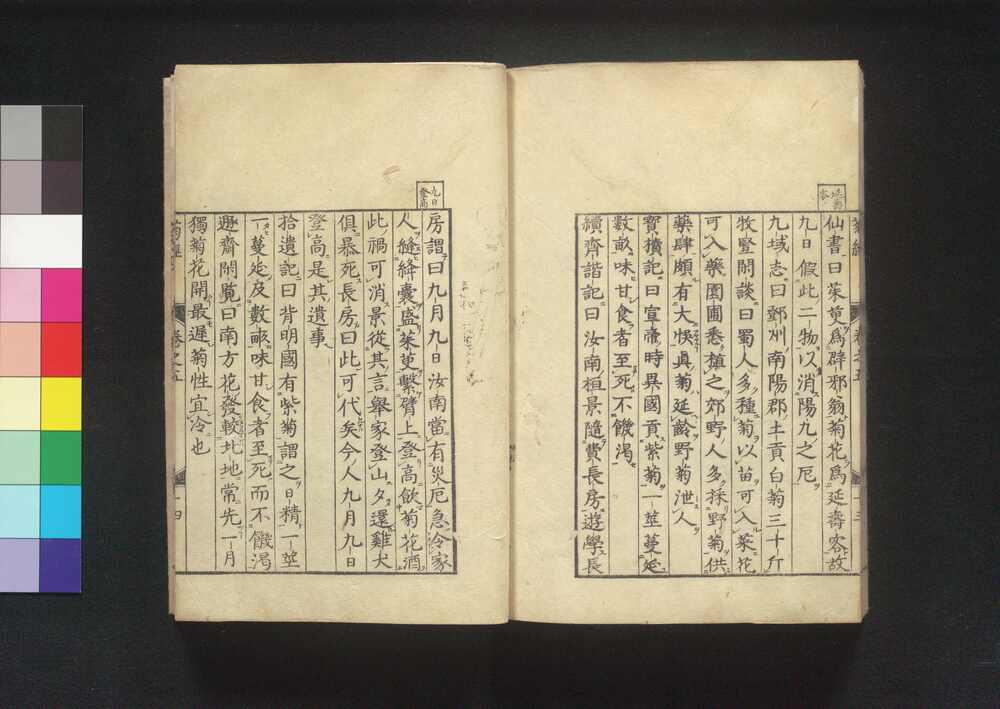 仙書曰茱萸爲辟邪翁菊花爲延壽客故
九日假此二物以消陽九之厄
九域志曰鄭州南陽郡土貢白菊三十斤
牧豎閒談曰蜀人多種菊以苗可入菜花
可入藥園圃悉植之郊野人多採野菊供
藥肆頗有大悞眞菊延齡野菊泄人
寶櫝記曰宣帝時異國貢紫菊一莖蔓延
數畝味甘食者至死不饑渴
續齊諧記曰汝南桓景隨費長房遊學長
九日登高
房謂曰九月九日汝南當有災厄急冷家
人縫絳囊盛茱萸繫臂上登高飲菊花酒
此禍可消景從其言舉家登山夕還雞犬
俱暴死長房曰此可代矣今人九月九日
登高是其遺事
拾遺記曰背明國有紫菊謂之日精一莖
一蔓延及數畝味甘食者至死而不饑渴
遯齋閒覧曰南方花發較北地常先一月
獨菊花開最遲菊性宜冷也
卷之五
十四